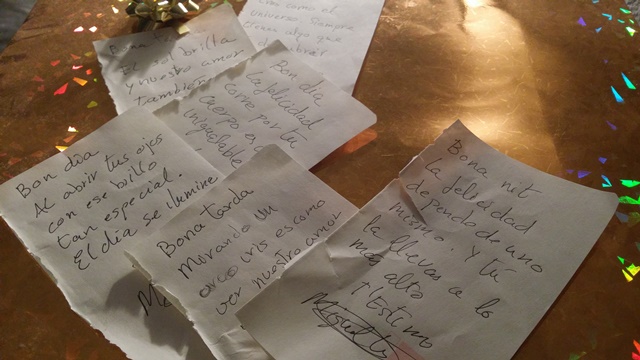 como el
universo siempre
crean algo que
El sol brilla
y nuestro amor
también
Bon dia
La felicidad
corre por tu
cuerpo es
inigualable
Bon dia
Al abrir tus ojos
con ese brillo
tan especial.
El día se ilumine
Bona tarda
Mirando un
arco iris es como
ver nuestro amor
Bona nit
la felicidad
depende de uno
mismo. Y tú
la llevas a lo
más alto
T'Estimo